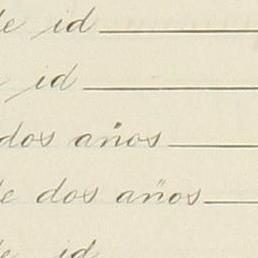 de id
id
dos años
de dos años
de id